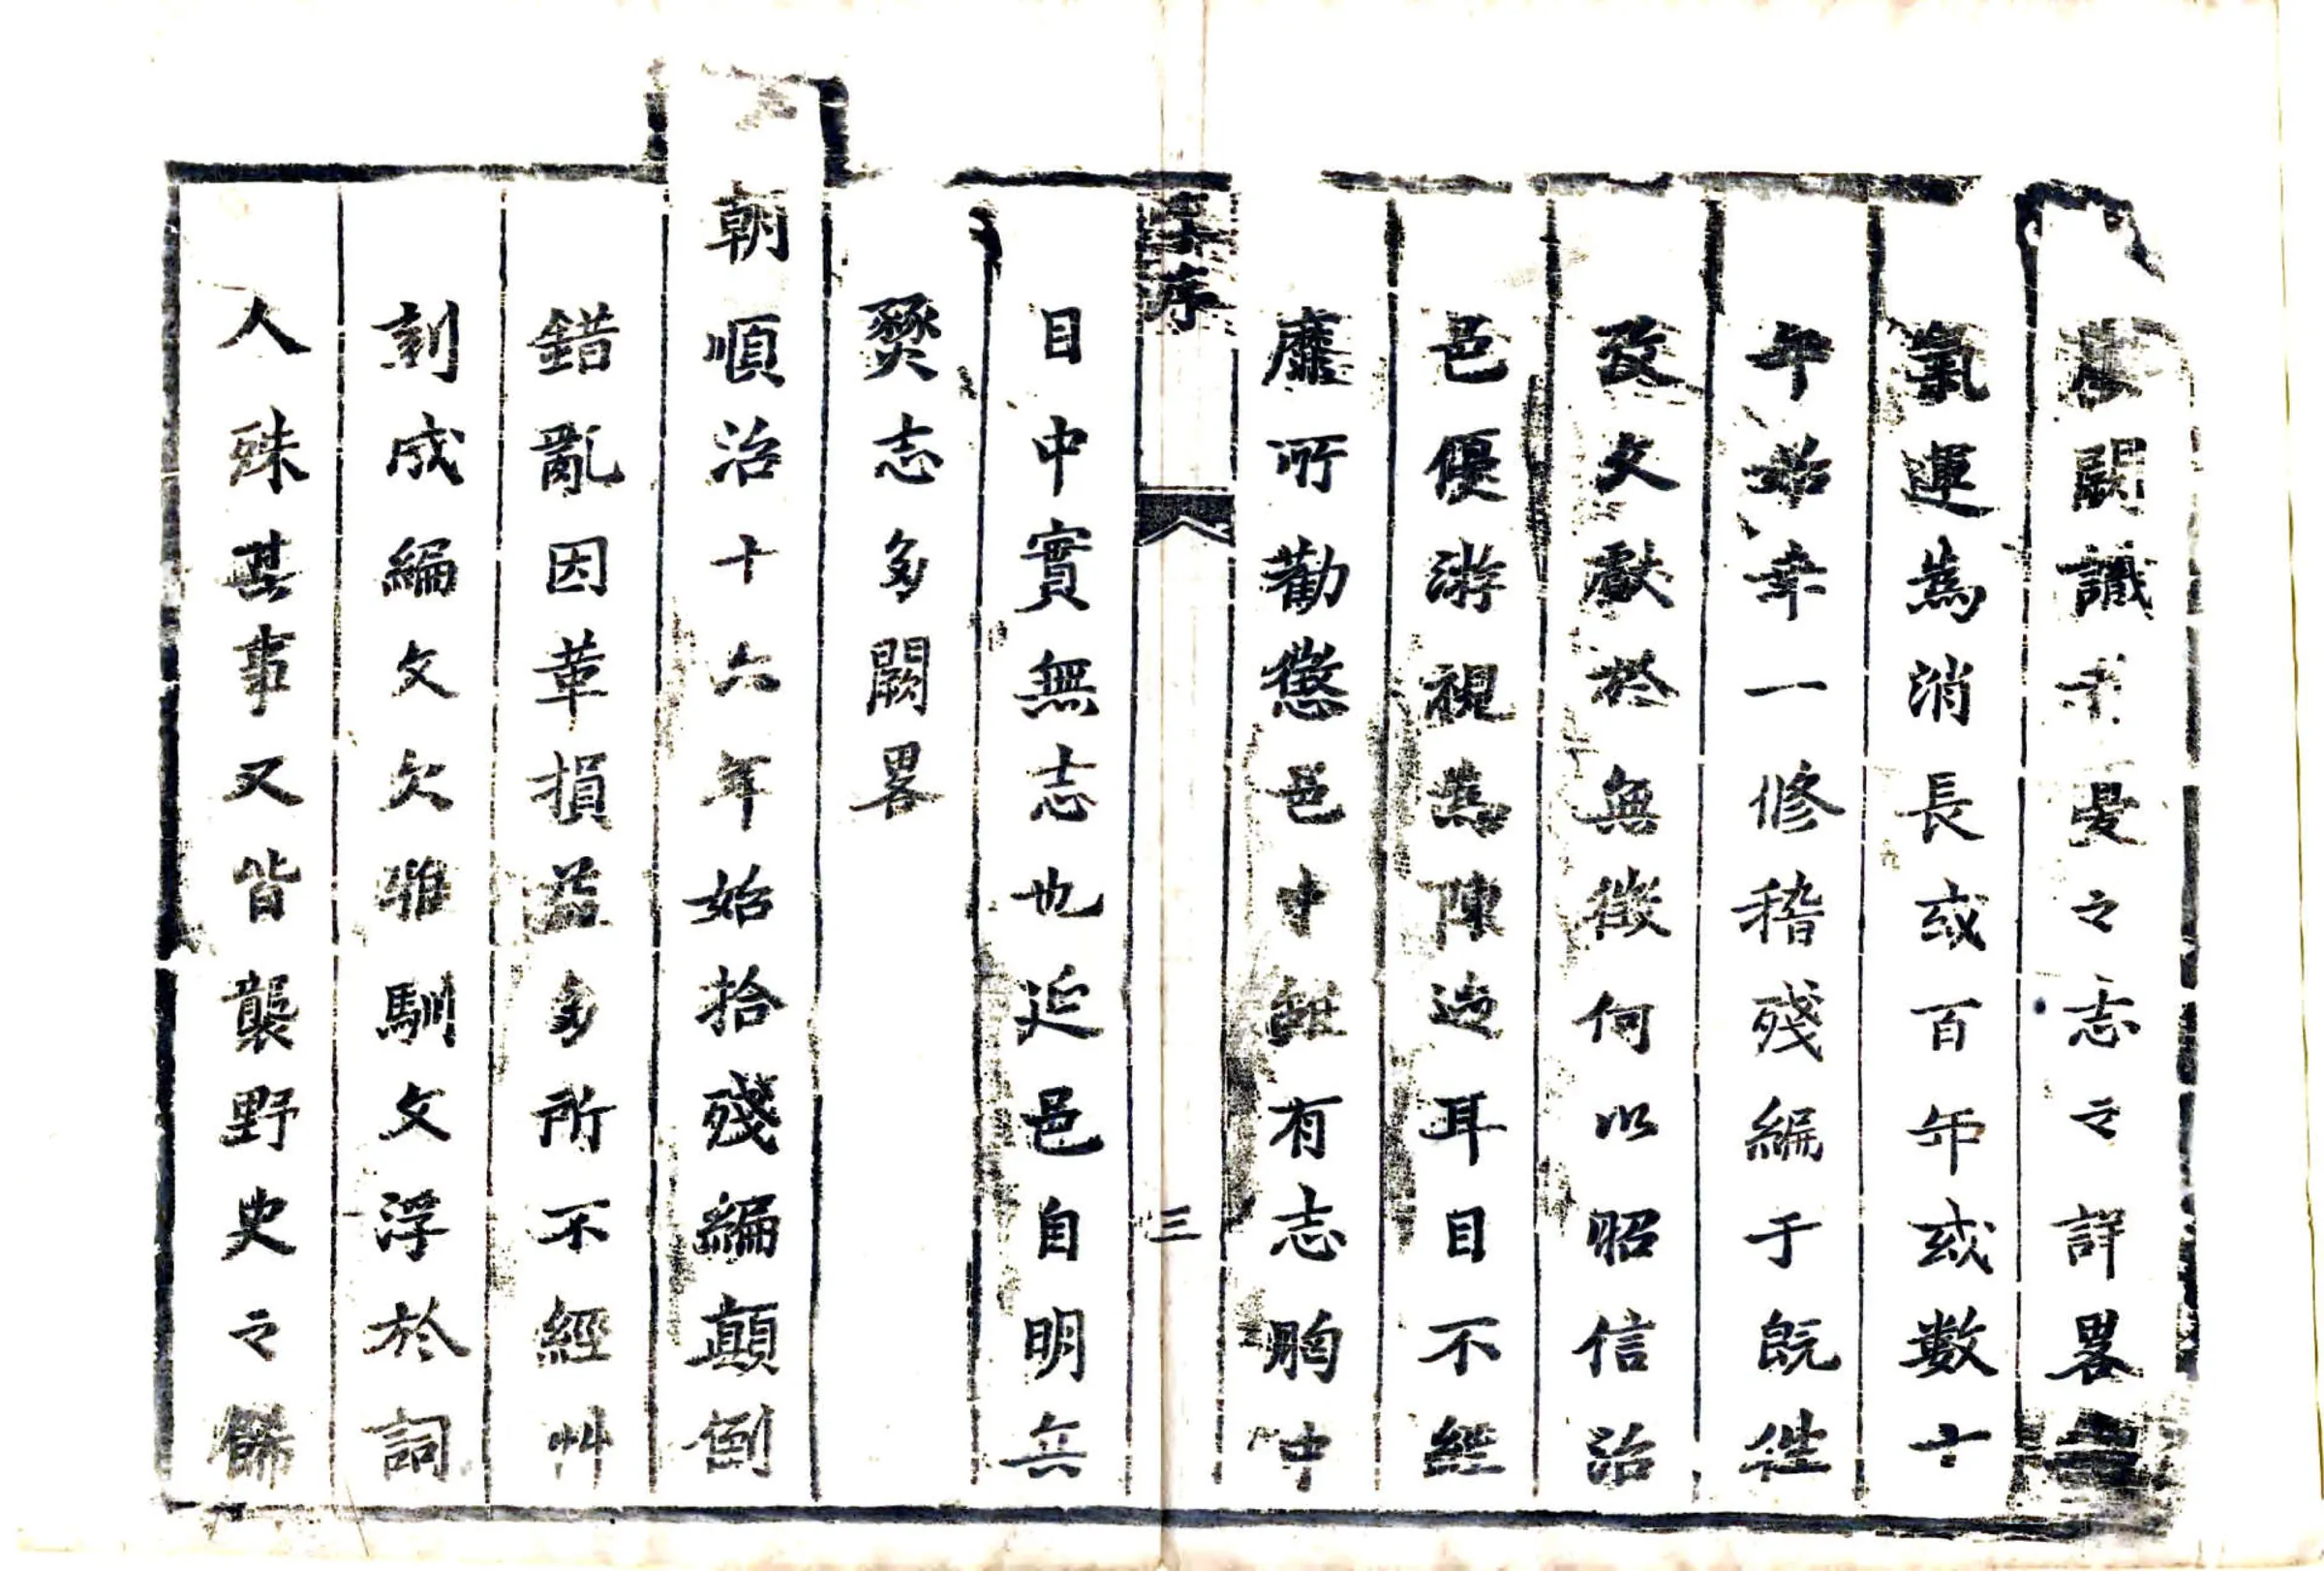 闕識者憂之志之詳畧
氣運為消長或百年或數十
年始幸一修稽殘編于既徃
攷文獻於無徵何以昭信治
邑優游視為陳迹耳目不經
靡所勸懲邑中雖有志胸中
序
三
目中實無志也延邑自明兵
燹志多闕畧
朝順治十六年始拾殘編顛倒
錯亂因革損益多所不經艸
刻成編文欠雅馴文浮於詞
人殊其事又皆襲野史之餙